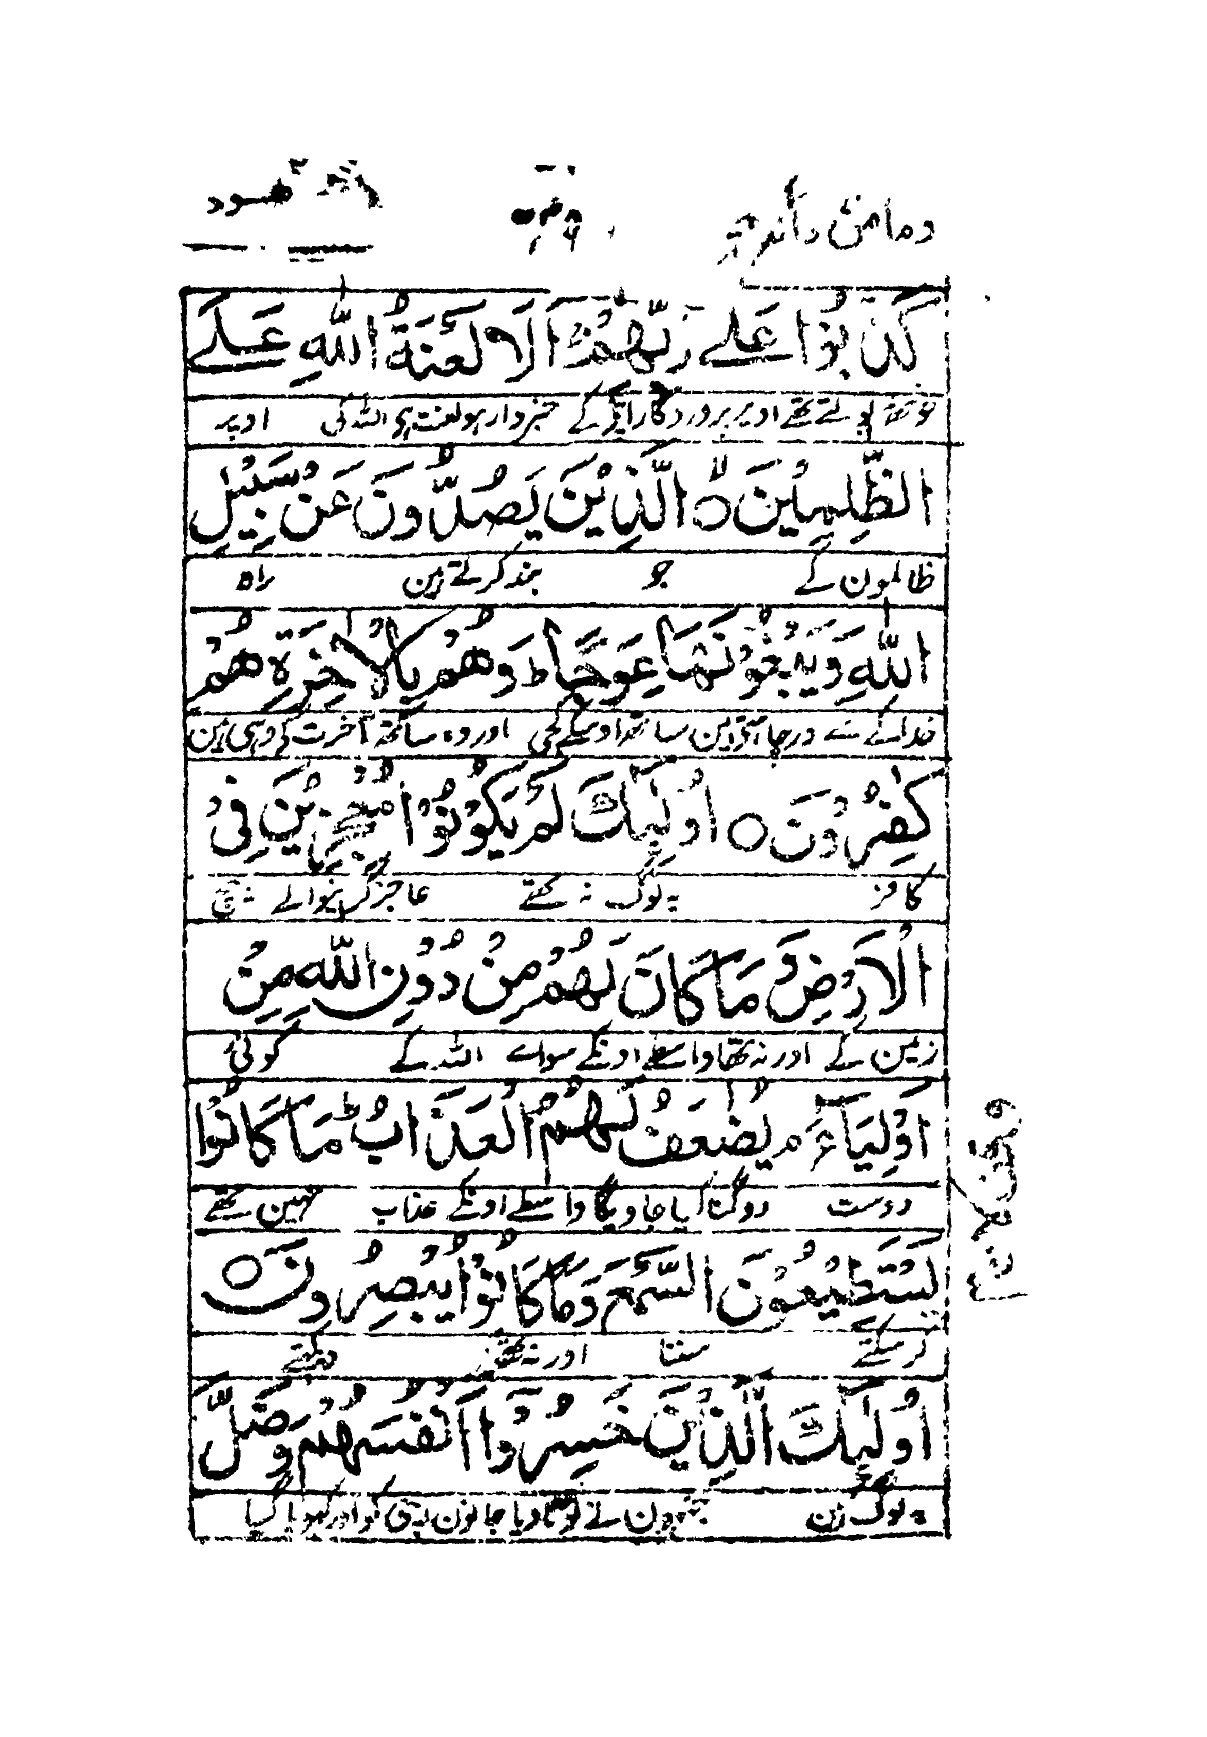 ومامن دآبة هود
كَذَبُوْا عَلٰے رَبِّهِمْ ۚ اَلَا لَعْنَةُ اللّٰهِ عَلَے
جھوٹھ بولتے تھے اوپر پروردگار اپنے کے خبردار ہو لعنت ہی اللہ کی اوپر
الظّٰلِمِيْنَ ۙ○ الَّذِيْنَ يَصُدُّوْنَ عَنْ سَبِيْلِ
ظالمون کے جو بند کرتے ہین راہ
اللّٰهِ وَيَبْغُوْنَهَا عِوَجًا ط وَهُمْ بِالْاٰخِرَةِ هُمْ
خدا کے سے اور چاہتے ہین ساتھ اوسکے کجی اور وہ ساتھ آخرت کے وہی ہین
كٰفِرُوْنَ ○ اُولٰٓئِكَ لَمْ يَكُوْنُوْا مُعْجِزِيْنَ فِي
کافر یہ لوگ نہ تھے عاجز کرنیوالے بیچ
الْاَرْضِ وَمَا كَانَ لَهُمْ مِنْ دُوْنِ اللّٰهِ مِنْ
زمین کے اور نہ تھا واسطے اونکے سواے اللہ کے کوئی
اَوْلِيَآءَ ۘ يُضٰعَفُ لَهُمُ الْعَذَابُ ط مَا كَانُوْا
دوست دوگنا کیا جاویگا واسطے اونکے عذاب نہین تھے
يَسْتَطِيْعُوْنَ السَّمْعَ وَمَا كَانُوْا يُبْصِرُوْنَ ○
کر سکتے سننا اور نہ تھے دیکھتے
اُولٰٓئِكَ الَّذِيْنَ خَسِرُوْٓا اَنْفُسَهُمْ وَضَلَّ
یہ لوگ ہین جنہون نے ٹوٹا دیا جانون اپنی کو اور کھویا گیا